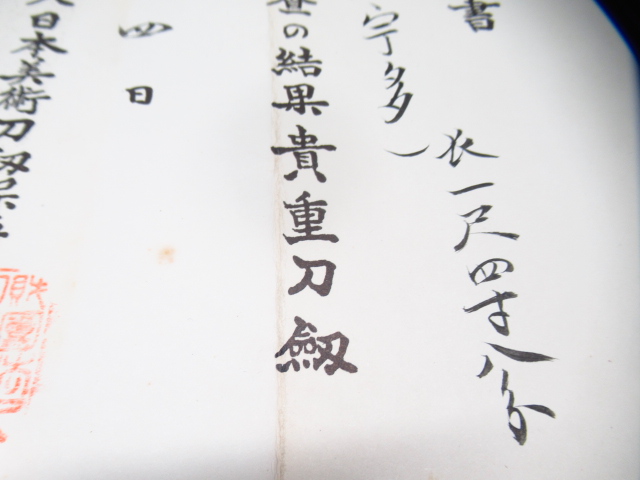 書
長一尺四寸八分
宇多)
査の結果貴重刀剱
四日
日本美術刀剱
財團